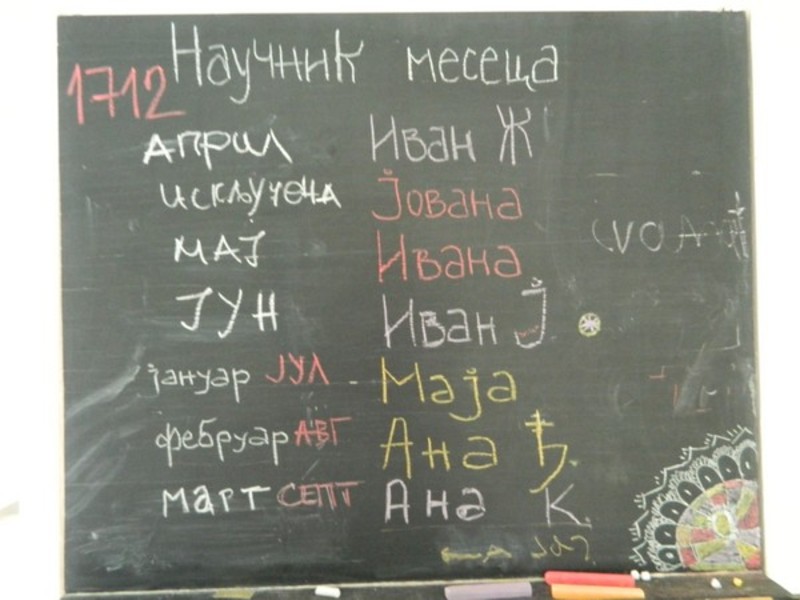 Научник месеца
1712
АПРИЛ Иван Ж
ИСКЉУЧЕНА Јована
МАЈ Ивана
ЈУН Иван Ј
јануар ЈУЛ - Маја
фебруар АВГ Ана Ђ.
МАРТ СЕПТ Ана К.
А ЈА?